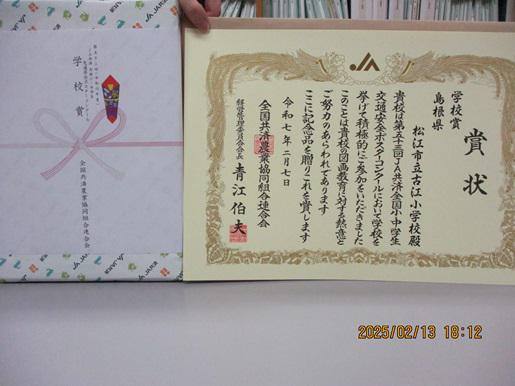 賞状
学校賞
島根県
松江市立古江小学校殿
貴校は第五十三回JA共済全国小中学生
交通安全ポスターコンクールにおいて学校を
挙げて積極的にご参加をいただきました
このことは貴校の図画教育に対する熱意と
ご努力のあらわれであります
ここに記念品を贈りこれを賞します
令和七年二月七日
全国共済農業協同組合連合会
経営管理委員会会長 青江伯夫
学校賞
全国共済農業協同組合連合会
JA共済
2025/02/13 18:12